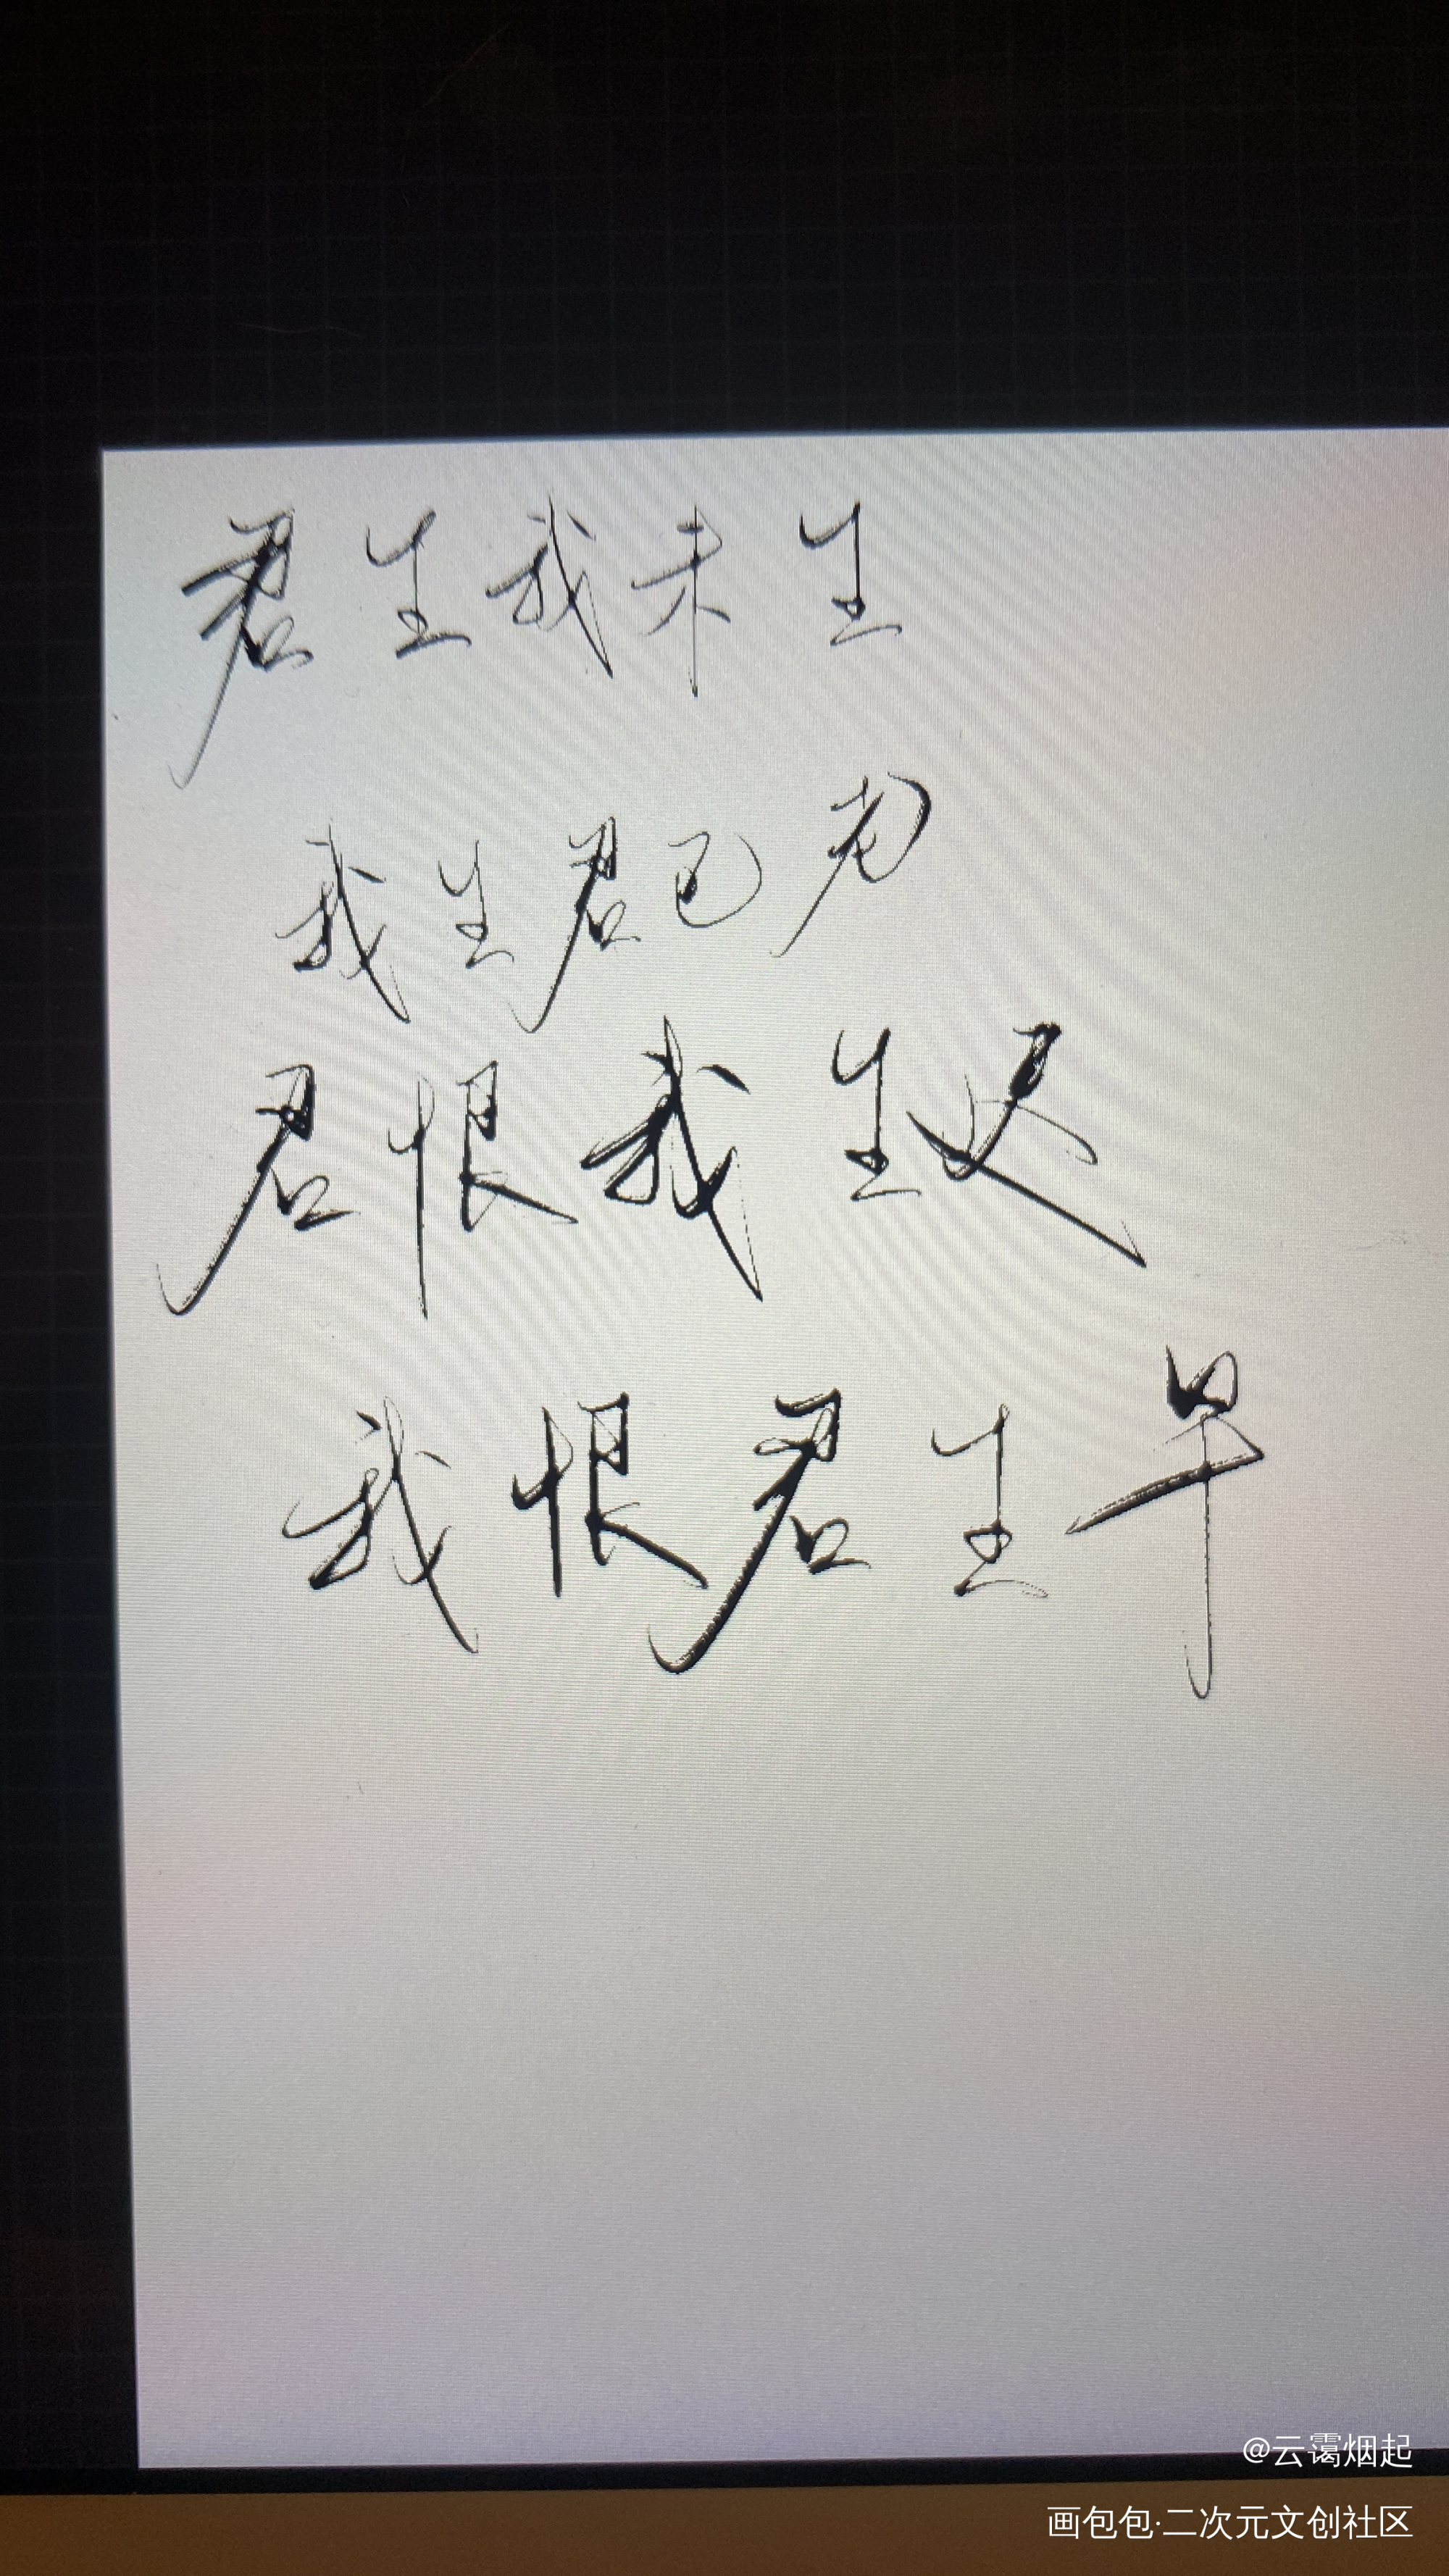 君生我未生
我生君已老
君恨我生迟
我恨君生早
@云霭烟起
画包包·二次元文创社区